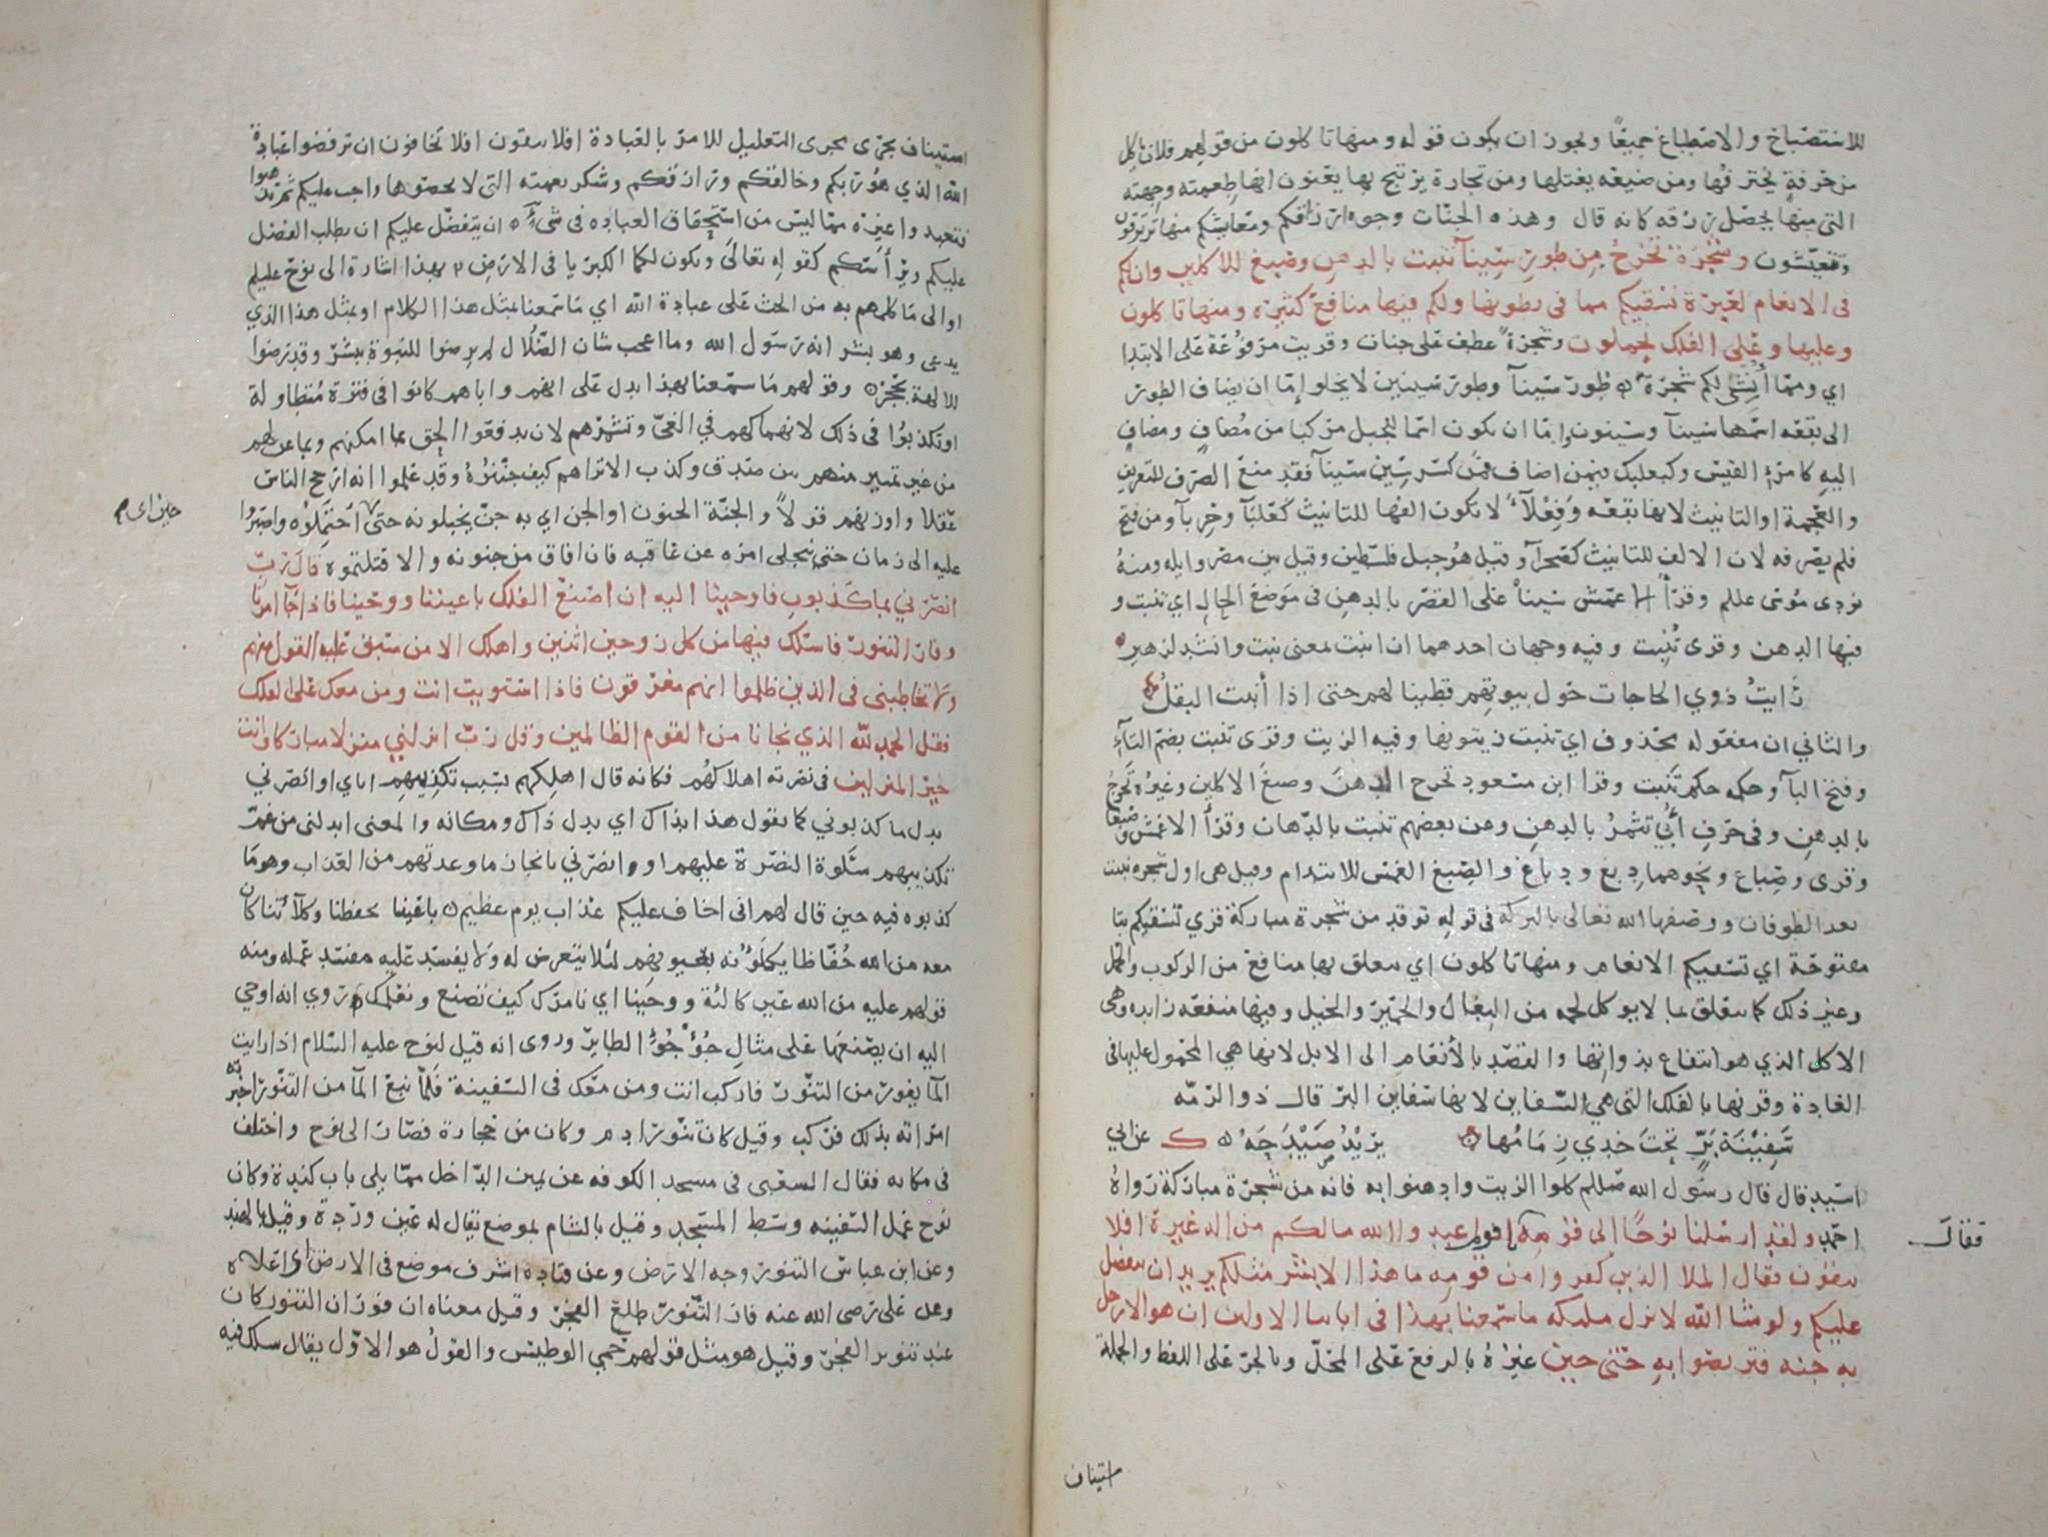 للاستصباح والاصطباغ جميعًا ويجوز ان يكون قوله ومنها تاكلون من قولهم فلان ياكل
من حرفةٍ يحترفُها ومن ضيعه يغتلها ومن تجارة يربح بها يعنون انها طعمته وجهته
التى منها يحصل رزقه كانه قال وهذه الجنات وجوه ارزاقكم ومعايشكم منها ترتزقون
وتتعيّشون وشجرة تخرجُ مِن طورِ سِيناَ تنبت بالدهن وصبغ للاكلين وان لكم
فى الانعام لعبرة نسقيكم مما فى بطونها ولكم فيها منافع كثيرة ومنها تاكلون
وعليها وعلى الفلك تحملون وشجرةً عطف على جنات وقريت مرفوعة على الابتدا
اي ومما أُنشِئ لكم شجرة ۝ طور سَينآ وطور سينين لايخلو إمّا ان يضاف الطور
الى بقعه اسمها سينآ وسينون وامّا ان يكون اسما للجبل مركبا من مُضافٍ ومضافٍ
اليه كامرئ القيس وكبعلبك فيمن اضاف فمن كسر سِين سيناَ فقد منع الصرف للتعريف
والعجمة او التانيث لانها بقعه وَفِعْلآء لا يكون الفها للتانيث كعلبآ وحِربآ ومن فتح
فلم يصرفه لان الالف للتانيث كصحرآ وقيل هو جبل فلسطين وقيل بين مصر وايله ومنهُ
نودى موسى عللم وقرأ الاعمش سينا على القصر بالدهن فى موضع الحال اي تنبت و
فيها الدهن وقرى تُنبِت وفيه وجهان احدهما ان انبت بمعنى نبت وانشد لزهير
رَايتُ ذوي الحاجات حول بيوتهم قطينا لهم حتى اذا أنبت البقلُ
والثاني ان مفعوله محذوف اي تنبت زيتونها وفيه الزيت وقرى تنبت بضم التآءِ
وفتح البآ وحكمه حكم تَنبت وقرا ابن مسعود تخرج الدهنَ وصبغَ الاكلين وغيره تَخرجُ
بالدهنِ وفى حرفِ أُبيّ تثمرُ بالدهنِ وعن بعضهم تنبت بالدِّهان وقرأ الاعمش وصبغا
وقرى وصِباع ونحوهما دِبغ ودِباغ والصِّبغ الغمس للايتدام وقيل هى اول شجره نبتت
بعد الطوفان ووصفها الله تعالى بالبركه فى قوله توقد من شجرة مباركة قرى تسقيكم بتا
مفتوحة اي تسقيكم الانعام ومنها تاكلون اي تتعلق بها منافع من الركوب والحمل
وغير ذلك كما يتعلق بما لا يوكل لحمه من البغال والحمير والخيل وفيها منفعه زايده وهى
الاكل الذي هو انتفاع بذواتها والقصد بالأنعام الى الابل لانها هي المحمول عليها فى
العادة وقرنها بالفلك التى هي السَّفاين لانها سَفاين البر قال ذو الرّمّه
سَفِيْنَة بَرٍّ تحْتَ خدي زِمَامُها يزيدُ صَيْدَجَهُ ۝ ك عن ابي
اسَيد قال قال رسول الله صللم كلوا الزيت وادهنوا به فانه من شجرة مباركة رَواهُ
احمد ولقد ارسلنا نوحًا الى قومِه فقال يا قوم اعبدوا الله مالكم من اله غيرهُ افلا
تتقون فقال الملا الذين كفروا من قومه ما هذا الا بشر مثلكم يريد ان يتفضل
عليكم ولو شا الله لانزل ملئكه ما سمعنا بهذا فى ابائنا الاولين ان هو الا رجل
به جنه فتربصوا بهِ حتى حين غيرُهُ بالرفع على المحلّ وبالجرّ على اللفظ والجملة
فقال
استيناف
استيناف يجرى مجرى التعليل للامر بالعبادة افلا تتقون افلا تخافون ان ترفضوا عبادة
الله الذي هو ربكم وخالقكم ورازقكم وشكر نعمته التى لا تحصوها واجب عليكم ثم تذهبوا
فتعبدوا غيره مما ليس من استحقاق العباده فى شيء ۝ ان يتفضل عليكم ان يطلب الفضل
عليكم ويرأسكم كقوله تعالىَ وتكون لكما الكبريا فى الارض ۝ بهذا اشارة الى نوح عليلم
او الى مَا كلمهم به من الحث على عبادة الله اي مَا سمعنا بمثل هذا الكلام او بمثل هذا الذي
يدعى وهو بشر انه رَسول الله وما اعجب شان الضّلُال لم يرضوا للنبوة ببشر وقد رضوا
للالهة بحجر ۝ وقولهم مَا سمعنا بهذا يدل على انهم واباهم كانوا فى فترة مُتطاولة
او تكذبوُا فى ذلك لانهماكهم في الغىّ وتشمرهم لان يدفعوا الحق بما امكنهم وبما عن لهم
من غير تمييز منهم بين صدق وكذب الا تراهم كيف جنّنوُهُ وقد علموا انه ارجح الناس
عقلا واوزنهم قولاً والجنّة الجنون او الجن اي به جنّ يخبلونه حتى حين اى احتملوُه واصبروا
عليه الى زمان حتى ينجلى امره عن عاقبه فان افاق من جنونه والا قتلتموه قال رَبِّ
انصرني بما كذبوبِ فاوحينا اليه ان اصنع الفلك باعيننا ووحينا فاذا جآ امرنا
وفار التنور فاسلك فيها من كل زوجين اثنين واهلك الا من سبق عليه القول منهم
ولا تخاطبنى فى الذين ظلموا انهم مغرقون فاذا استويت انت ومن معك على الفلك
فقل الحمد لله الذي نجانا من القوم الظالمين وقل رَبّ انزلني منزلا مباركا وانت
خير المنزلين فى نصرته اهلاكهُم فكانه قال اهلِكهم بسبب تكذيبِهم اياي او انصرني
بدل ما كذبوني كما تقول هذا بذاك اي بدل ذاك ومكانه والمعنى ابدلنى من غم
تكذيبهم سَلوة النصرة عليهم او انصرني بانجاز ما وعدتهم من العذاب وهو مَا
كذبوه فيه حين قال لهم انى اخاف عليكم عذاب يوم عظيم ۝ باعيننا بحفظنا وكلآئتنا كان
معه من الله حُفّاظا يكلَؤنه بعيونهم لئلا يتعرض له ولا يفسد عليه مفسد عمله ومنه
قولهم عليه من الله عين كالئة ووحيَنا اي نامرك كيف تصنع ونعلمك رَوي انه اوحي
اليه ان يصنعها على مثال جُؤجُؤ الطاير وروى انه قيل لنوح عليه السّلام اذا رايت
المآ يفور من التنّور فاركب انت ومن معك فى السّفينة فَلمّا نبع المآ من التنّور اخبرته
امراته بذلك فركب وقيل كان تنور ادم وكان من حجارة فصَار الى نوح واختلف
فى مكانه فقال الشعبى فى مسجد الكوفه عن يمين الدّاخل ممّا يلى باب كندة وكان
نوح عمل السّفينه وسَط المسَجد وقيل بالشام بموضع يقال له عين ورْدة وقيل بالهند
وعن ابن عباس التنور وجه الارض وعن قتاده اشرف موضع فى الارض اي اعلاه
وعن على رضى الله عنه فار التّنّور طلع الفجر وقيل معناه ان فوران التنور كان
عند تنوير الفجر وقيل هو مثل قولهم حَمي الوطيس والقولُ هو الاوّل يقال سلك فيه
حين اى